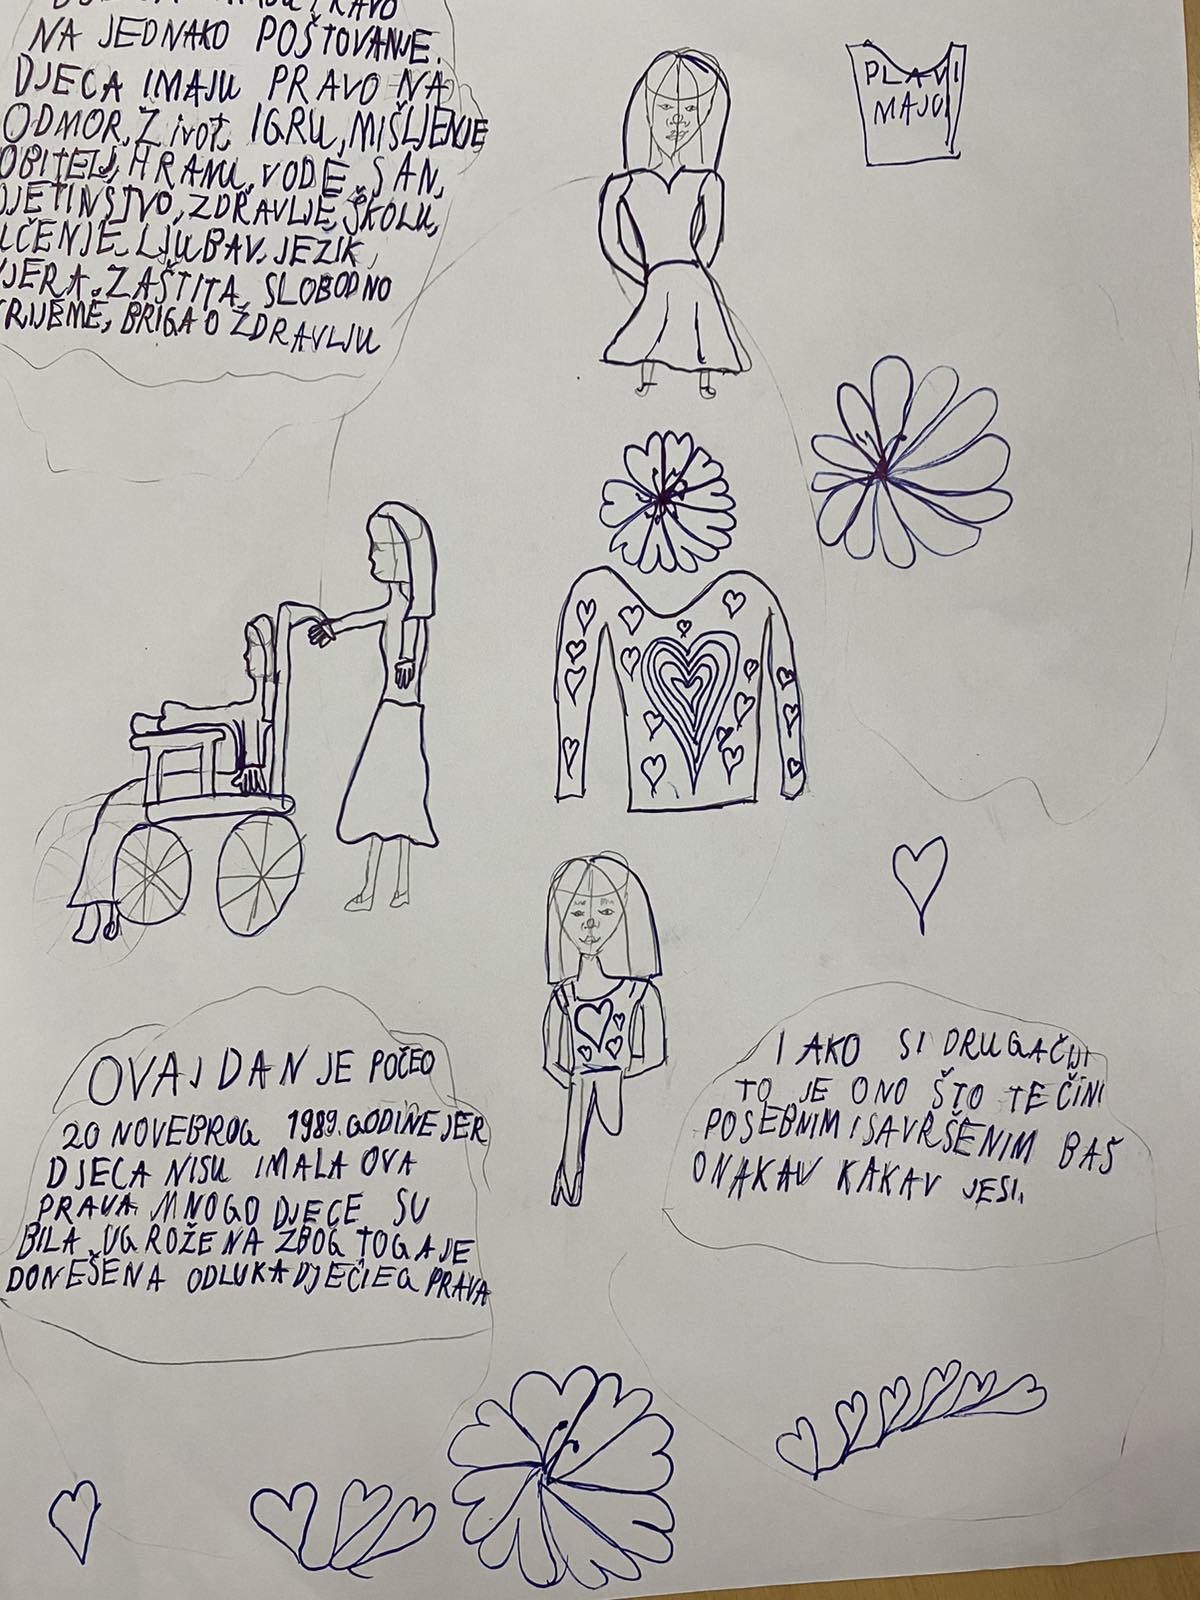 PRAVO
NA JEDNAKO POŠTOVANJE.
DJECA IMAJU PRAVO NA
ODMOR, Život, IGRU, MIŠLJENJE
OBITELJ, HRANU, VODE, SAN,
DJETINSTVO, ZDRAVLJE, ŠKOLU,
UČENJE, LJUBAV, JEZIK,
VJERA, ZAŠTITA, SLOBODNO
VRIJEME, BRIGA O ŽDRAVLJU
PLAVI
MAJCI
OVAJ DAN JE POČEO
20 NOVEBROG 1989. GODINE JER
DJECA NISU IMALA OVA
PRAVA. MNOGO DJECE SU
BILA UGROŽENA ZBOG TOGA JE
DONEŠENA ODLUKA DJEČIEG PRAVA
I AKO SI DRUGAČIJI
TO JE ONO ŠTO TE ČINI
POSEBNIM I SAVRŠENIM BAŠ
ONAKAV KAKAV JESI.